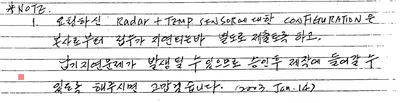 ※NOTE.
1. 요청하신 Radar + Temp SENSOR에 대한 CONFIGURATION은
본사로부터 접수가 지연되는바 별도로 제출토록 하고,
납기지연문제가 발생될 수 있으므로 승인후 제작에 들어갈 수
있도록 해주시면 고맙겠읍니다. (2003. Jan. 14)